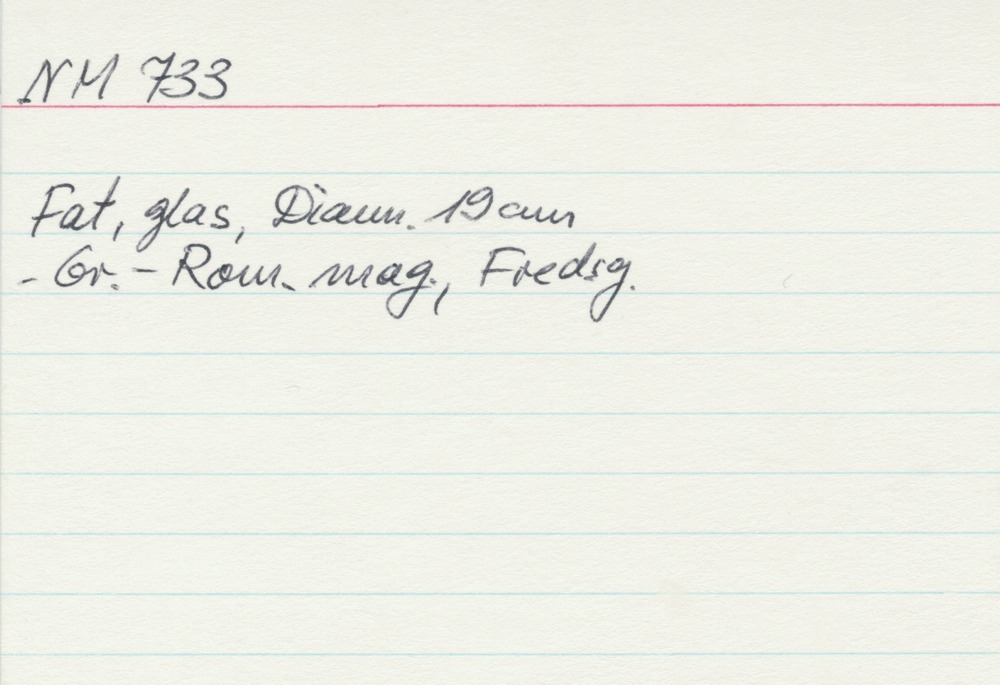 NM 733
Fat, glas, Diam. 19 cm
- Gr. - Rom. mag., Fredsg.